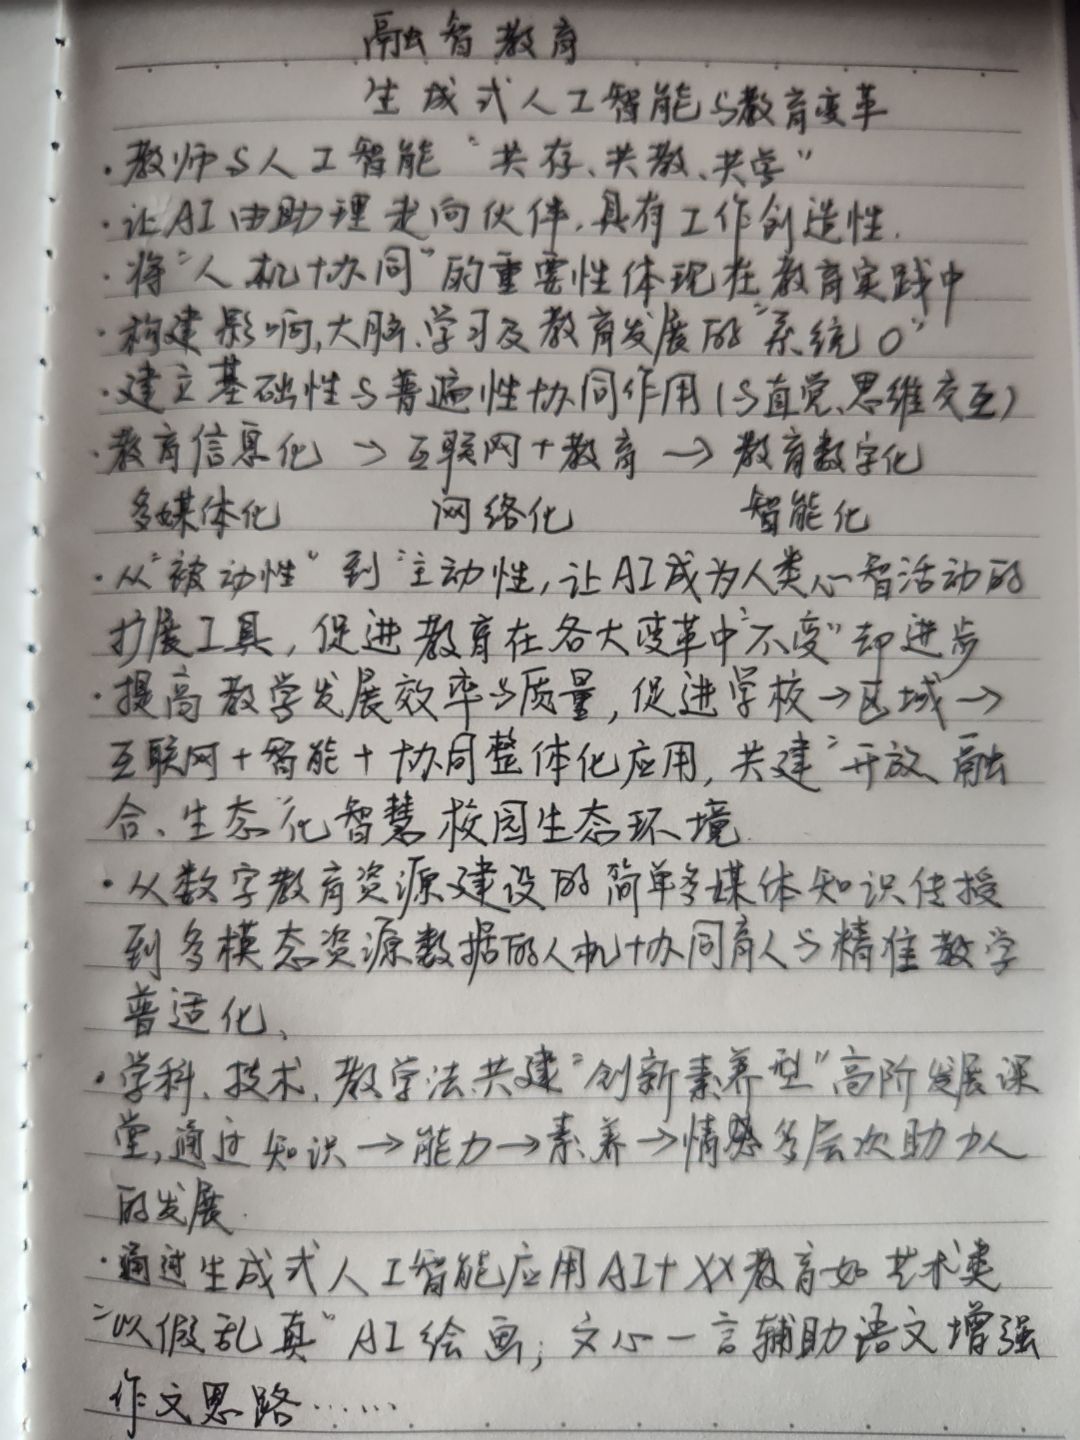 融智教育
生成式人工智能与教育变革
·教师与人工智能“共存、共教、共学”
·让AI由助理走向伙伴,具有工作创造性.
·将“人机协同”的重要性体现在教育实践中
·构建影响,大脑、学习及教育发展的“系统0”
·建立基础性与普遍性协同作用(与直觉、思维交互)
·教育信息化→互联网+教育→教育数字化
多媒体化 网络化 智能化
·从“被动性”到“主动性,让AI成为人类心智活动的
扩展工具,促进教育在各大变革中“不变”却进步
·提高教学发展效率与质量,促进学校→区域→
互联网+智能+协同整体化应用,共建“开放、融
合、生态”化智慧校园生态环境.
·从数字教育资源建设的简单多媒体知识传授
到多模态资源数据的人机协同育人与精准教学
普适化、
·学科、技术、教学法共建“创新素养型”高阶发展课
堂,通过知识→能力→素养→情感多层次助力人
的发展.
·通过生成式人工智能应用AI+XX教育如艺术类
“以假乱真”AI绘画;文心一言辅助语文增强
作文思路……